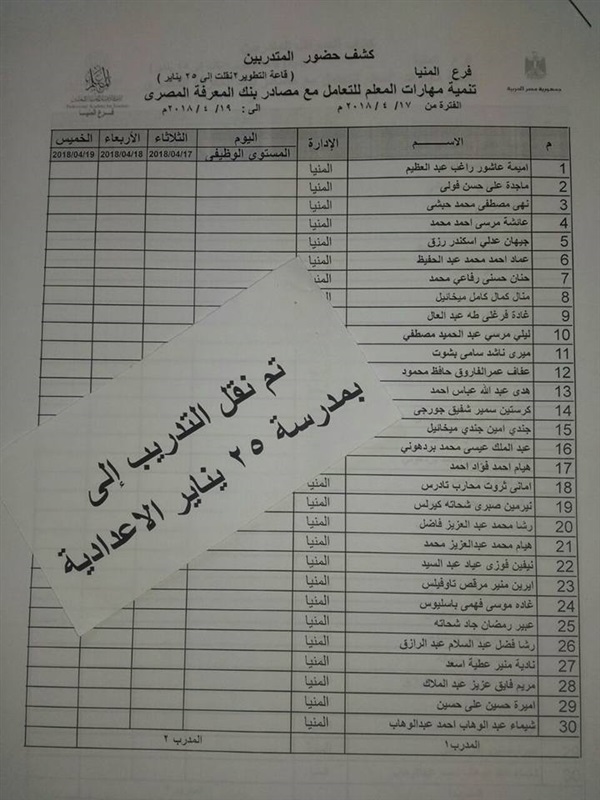 كشف حضور المتدربين
فرع المنيا ( قاعة التطوير٢نقلت إلى ٢٥ يناير )
تنمية مهارات المعلم للتعامل مع مصادر بنك المعرفة المصرى
الفترة من ١٧ / ٤ / ٢٠١٨ م الى : ١٩ / ٤ / ٢٠١٨م
جمهورية مصر العربية
فرع المنيا
م الاســـم الإدارة اليوم الثلاثاء الأربعاء الخميس
المستوى الوظيفى 2018/04/17 2018/04/18 2018/04/19
1 اميمة عاشور راغب عبد العظيم المنيا
2 ماجدة على حسن فولى المنيا
3 نهى مصطفى محمد حبشى المنيا
4 عائشة مرسى احمد محمد المنيا
5 جيهان عدلي اسكندر رزق المنيا
6 عماد احمد محمد عبد الحفيظ المنيا
7 حنان حسنى رفاعي محمد المنيا
8 منال كمال كامل ميخائيل المنيا
9 غادة فرغلى طه عبد العال
10 ليلي مرسي عبد الحميد مصطفي
11 ميرى ناشد سامى بشوت
12 عفاف عمرالفاروق حافظ محمود
13 هدى عبد الله عباس احمد
14 كرستين سمير شفيق جورجى
15 جندي امين جندي ميخائيل
16 عبد الملك عيسى محمد بردهوني
17 هيام احمد فؤاد احمد
18 امانى ثروت محارب تادرس المنيا
19 نيرمين صبرى شحاته كيرلس المنيا
20 رشا محمد عبد العزيز فاضل المنيا
21 هيام محمد عبدالعزيز محمد المنيا
22 نيفين فوزى عياد عبد السيد المنيا
23 ايرين منير مرقص تاوفيلس المنيا
24 غاده موسى فهمى باسليوس المنيا
25 عبير رمضان جاد شحاته المنيا
26 رشا فضل عبد السلام عبد الرازق المنيا
27 نادية منير عطية اسعد المنيا
28 مريم فايق عزيز عبد الملاك المنيا
29 اميرة حسين على حسين المنيا
30 شيماء عبد الوهاب احمد عبدالوهاب المنيا
المدرب١ المدرب ٢
تم نقل التدريب إلى
بمدرسة ٢٥ يناير الاعدادية